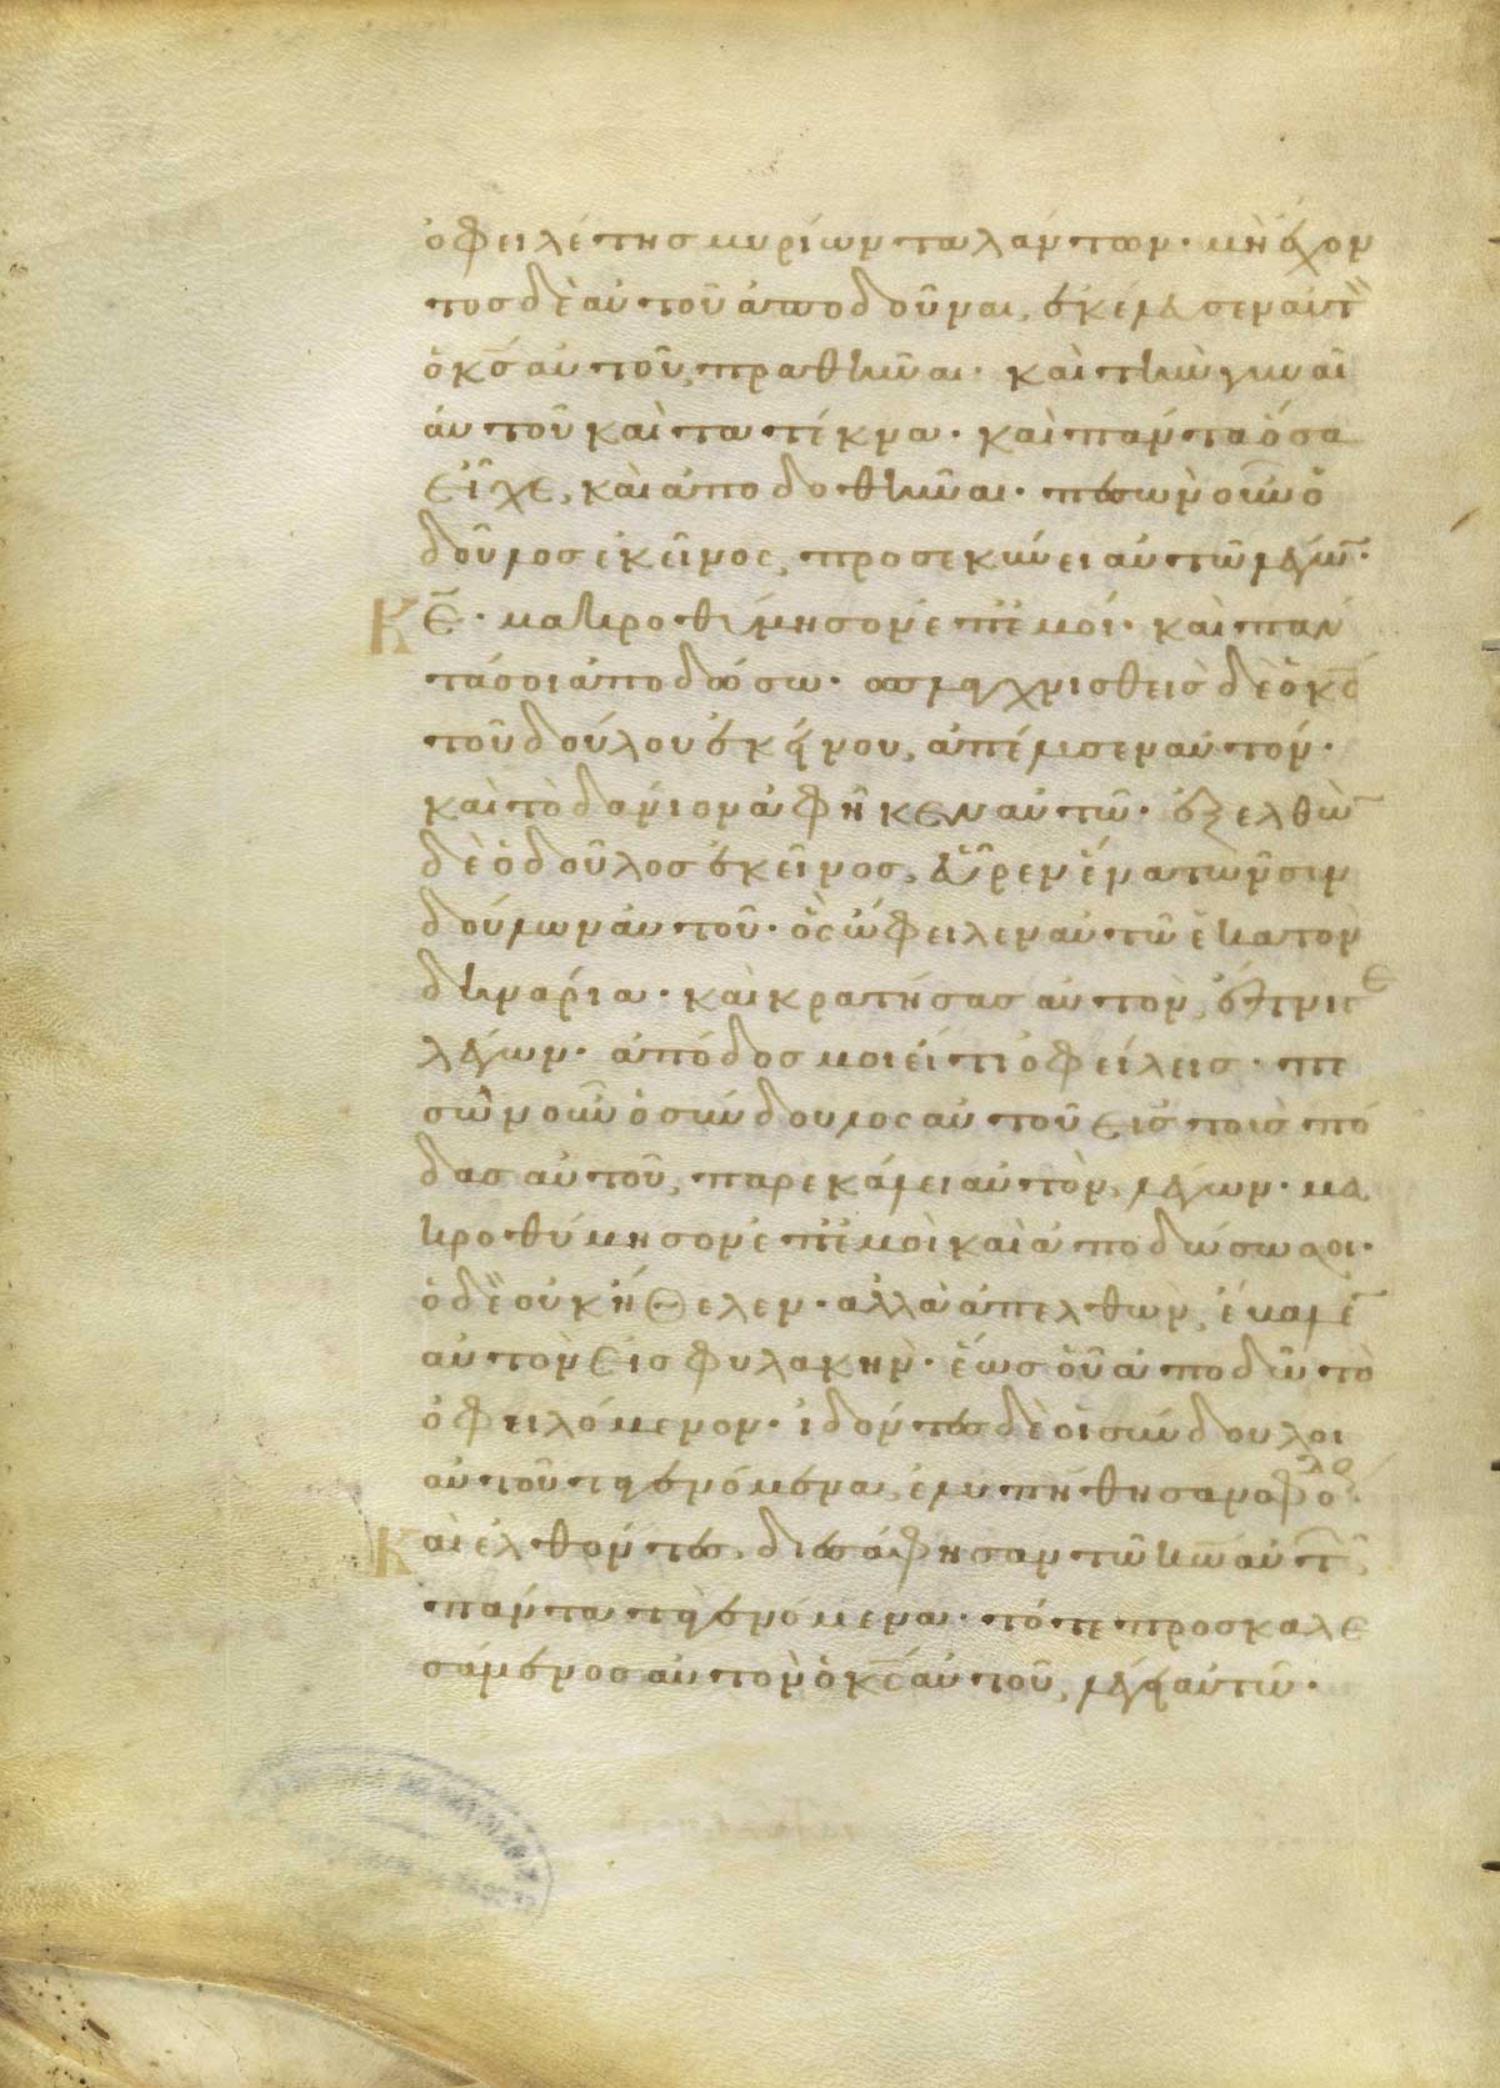 ὀφειλέτησ μυρίων ταλάντων· μὴ ἔχον
τοσ δὲ αὐτοῦ ἀποδοῦναι, ἐκέλευσεν αὐτὸ̄
ὁ κ̄σ̄ αὐτοῦ, πραθῆναι· καὶ τὴν γυναῖ
αὐτοῦ καὶ τα τέκνα· καὶ πάντα ὅσα
εἶχε, καὶ ἀποδοθῆναι· πεσὼν οὖν ὁ
δοῦλοσ ἐκεῖνος, προσεκύνει αὐτῶ λέγω̄·
Κ̄ε̄· μακροθύμησον ἐπ' ἐμοί· καὶ παν
τά σοι ἀποδώσω· σπλαγχνισθεὶσ δὲ ὁ κ̄σ̄
τοῦ δούλου ἐκείνου, ἀπέλυσεν αὐτόν·
καὶ τὸ δάνιον ἀφῆκεν αὐτῶ· ἐξελθὼ̄
δὲ ὁ δοῦλοσ ἐκεῖνοσ, εὗρεν ἕνα τῶν συν
δούλων αὐτοῦ· ὃς ὤφειλεν αὐτῶ ἑκατὸν
δηνάρια· καὶ κρατήσασ αὐτὸν, ἔπνιγε
λέγων· ἀπόδοσ μοι εἴ τι ὀφείλεισ· πε
σὼν οὖν ὁ σύνδουλος αὐτοῦ εἰσ τοὺσ πό
δασ αὐτοῦ, παρεκάλει αὐτὸν, λέγων· μα
κροθύμησον ἐπ' ἐμοὶ καὶ ἀποδώσω σοι·
ὁ δὲ οὐκ ἤθελεν· ἀλλὰ ἀπελθὼν, ἔβαλε̄
αὐτὸν εἰσ φυλακήν· ἕωσ οὗ ἀποδῶ τὸ
ὀφειλόμενον· ἰδόντεσ δὲ οἱ σύνδουλοι
αὐτοῦ τὰ γενόμενα, ἐλυπήθησαν σφόδρα·
Καὶ ἐλθόντεσ, διεσάφησαν τῶ κ̄ω̄ αὐτῶ̄,
πάντα τὰ γενόμενα· τότε προσκαλε
σάμενοσ αὐτὸν ὁ κ̄ς̄ αὐτοῦ, λέγει αὐτῶ·